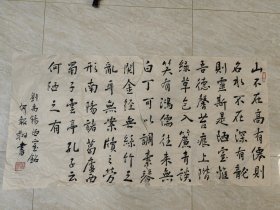 山不在高有僊則
名水不在深有龍
則靈斯是陋室惟
吾德馨苔痕上階
綠草色入簾青談
笑有鴻儒往來無
白丁可以調素琴
閱金經無絲竹之
亂耳無案牘之勞
形南陽諸葛廬西
蜀子雲亭孔子云
何陋之有
劉禹錫陋室銘
何 書